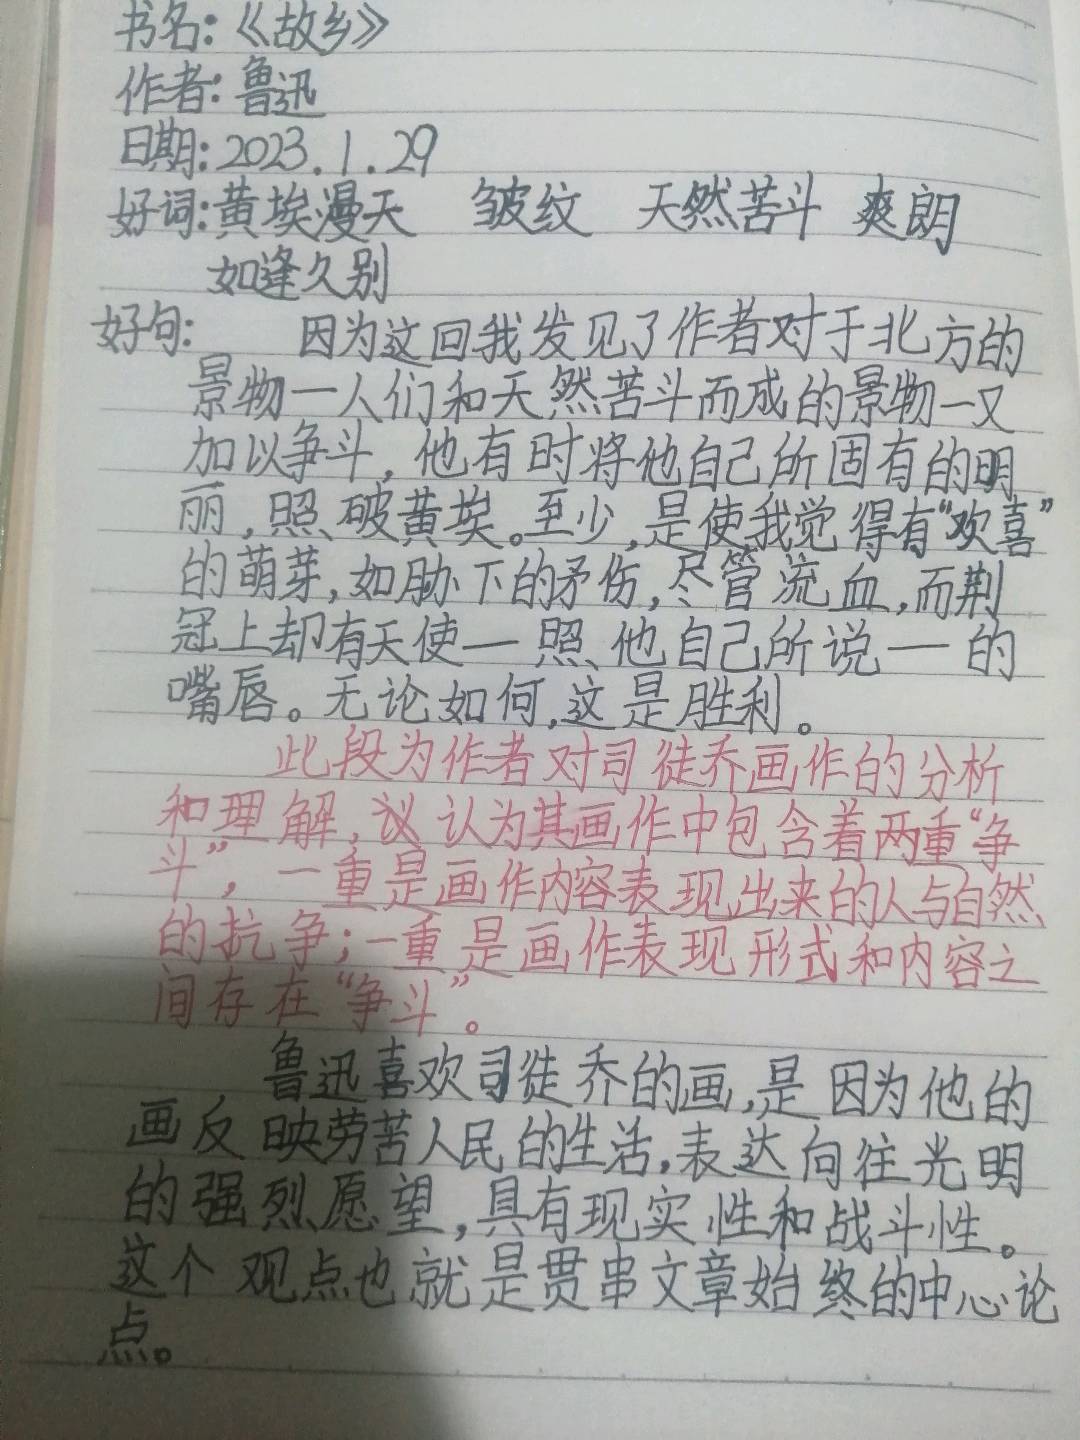 书名:《故乡》
作者:鲁迅
日期:2023.1.29
好词:黄埃漫天 皱纹 天然苦斗 爽朗
如逢久别
好句: 因为这回我发见了作者对于北方的
景物一人们和天然苦斗而成的景物一又
加以争斗,他有时将他自己所固有的明
丽,照破黄埃。至少,是使我觉得有“欢喜”
的萌芽,如胁下的矛伤,尽管流血,而荆
冠上却有天使—照他自己所说—的
嘴唇。无论如何,这是胜利。
此段为作者对司徒乔画作的分析
和理解,议认为其画作中包含着两重“争
斗”,一重是画作内容表现出来的人与自然
的抗争;一重是画作表现形式和内容之
间存在“争斗”。
鲁迅喜欢司徒乔的画,是因为他的
画反映劳苦人民的生活,表达向往光明
的强烈愿望,具有现实性和战斗性。
这个观点也就是贯串文章始终的中心论
点。